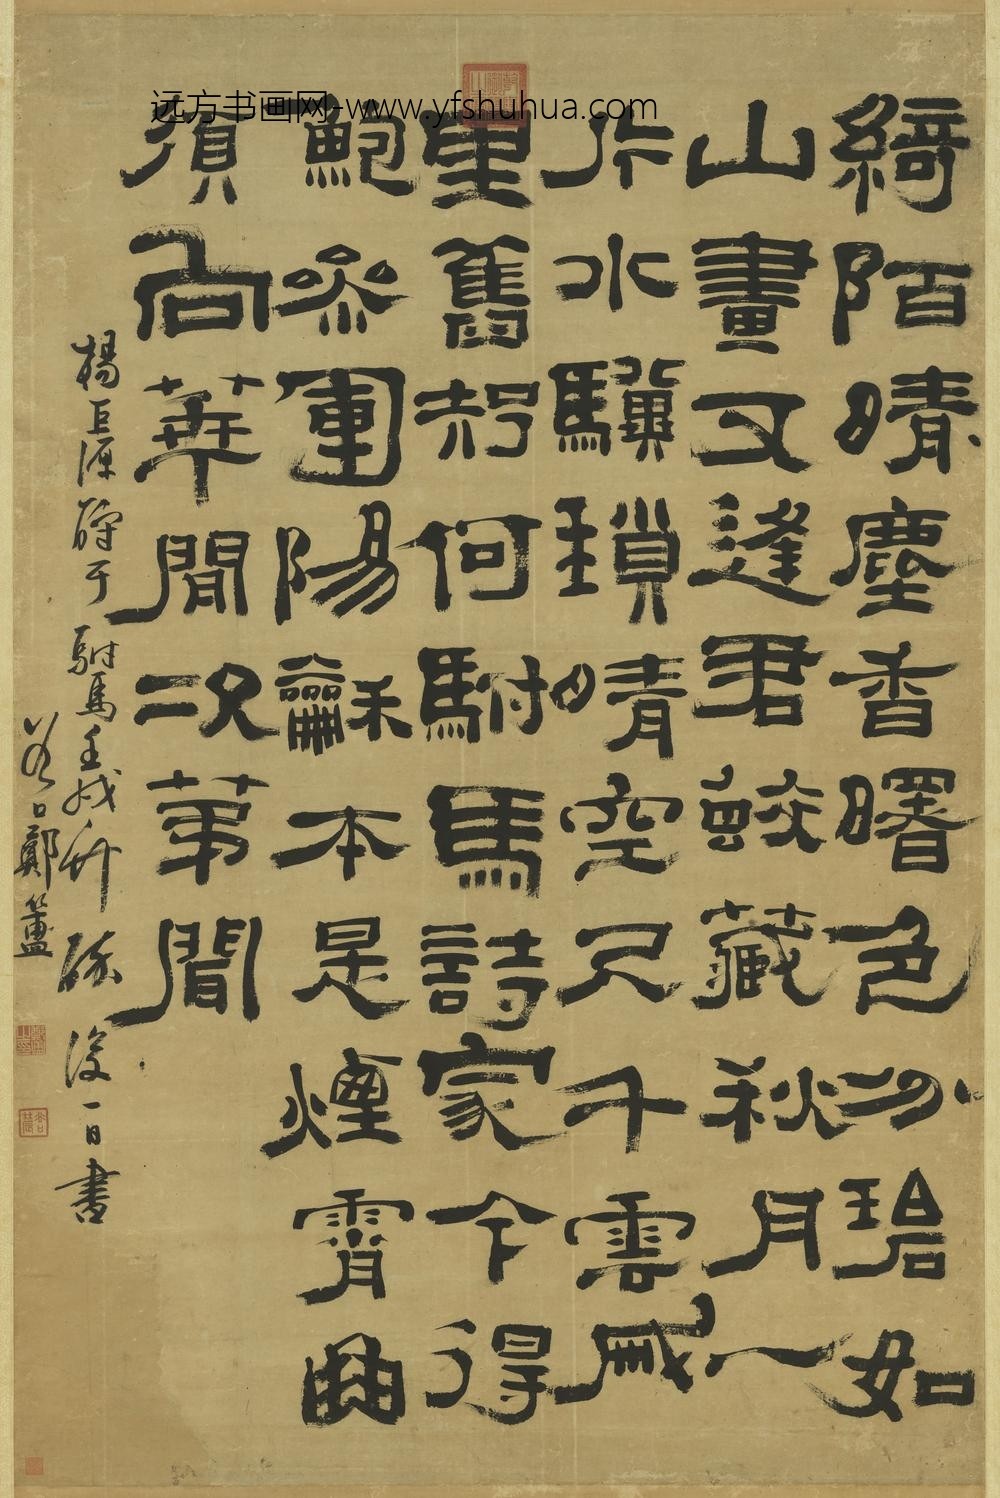 远方书画网-www.yfshuhua.com
綺陌晴塵香曙色分碧如
山畫又逢君蛟藏秋月一
片水驥鎖晴空尺千雲戚
里舊知何駙馬詩家今得
鮑參軍陽龢本是煙霄曲
須向華閒次第聞
楊巨源酬于駙馬壬戌竹醉後一日書
谷口鄭簠